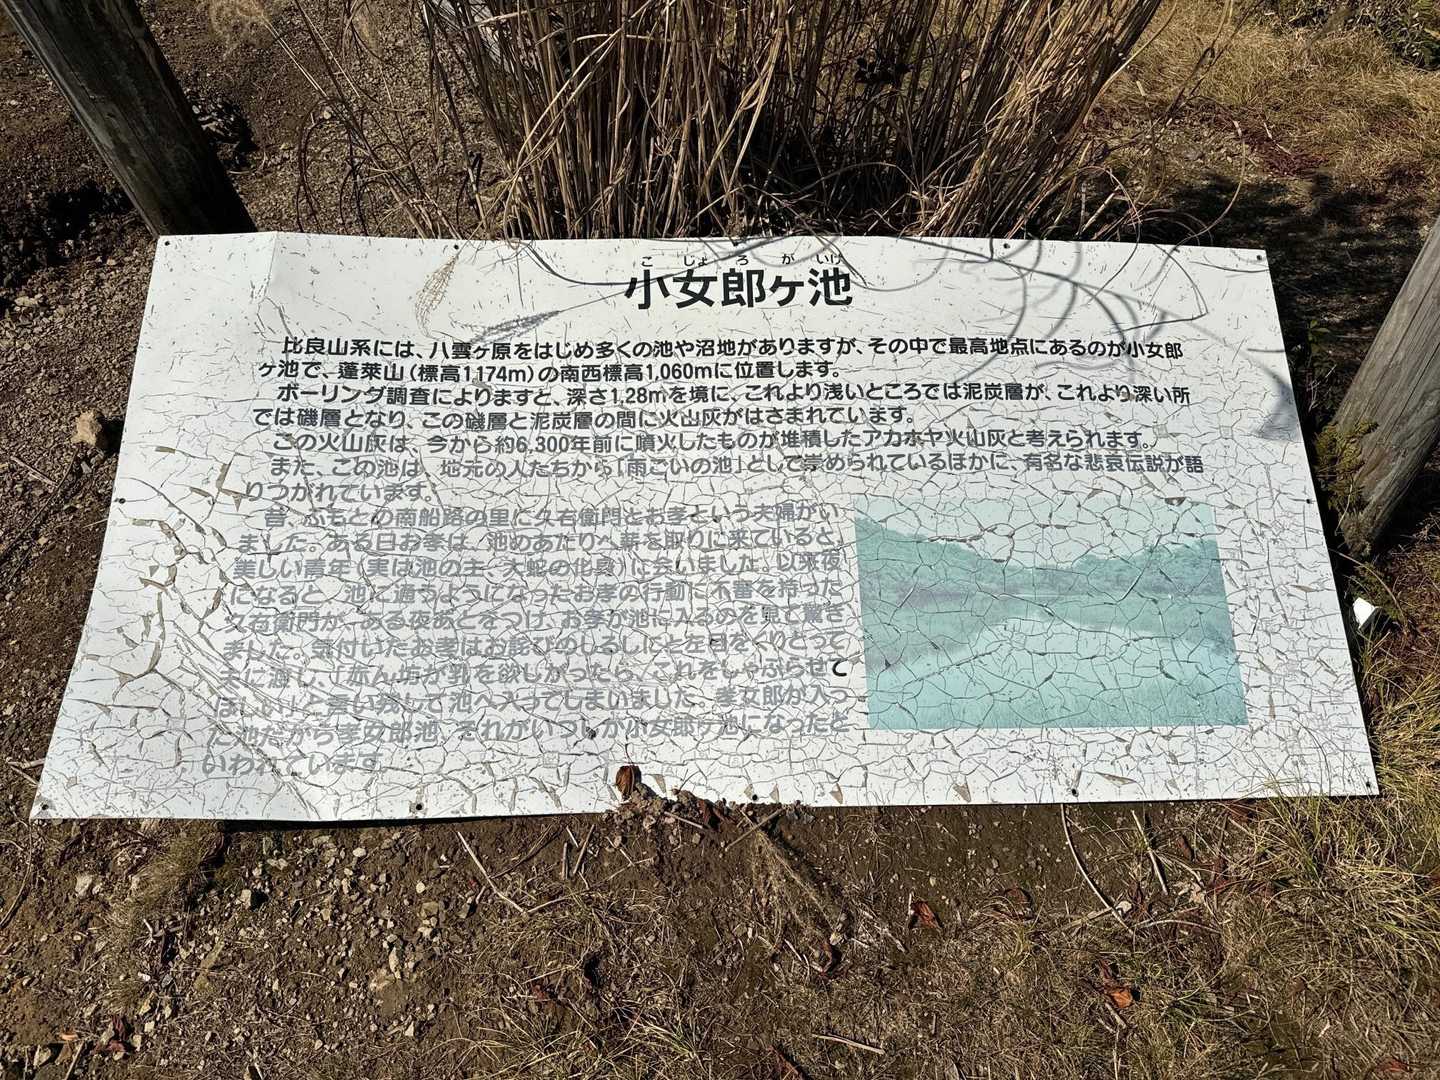 こじょろがいけ
小女郎ヶ池
比良山系には、八雲ヶ原をはじめ多くの池や沼地がありますが、その中で最高地点にあるのが小女郎
ヶ池で、蓬莱山(標高1,174m)の南西標高1,060mに位置します。
ボーリング調査によりますと、深さ1.28mを境に、これより浅いところでは泥炭層が、これより深い所
では礫層となり、この礫層と泥炭層の間に火山灰がはさまれています。
この火山灰は、今から約6,300年前に噴火したものが堆積したアカホヤ火山灰と考えられます。
また、この池は、地元の人たちから「雨ごいの池」として崇められているほかに、有名な悲哀伝説が語
りつがれています。
昔、ふもとの南船路の里に久右衛門とお孝という夫婦がい
ました。ある日お孝は、池のあたりへ薪を取りに来ていると、
美しい青年(実は池の主、大蛇の化身)に会いました。以来夜
になると、池に通うようになったお孝の行動に不審を持った
久右衛門が、ある夜あとをつけ、お孝が池に入るのを見て驚き
ました。気付いたお孝はお詫びのしるしにと左目をくりとって
夫に渡し、「赤ん坊が乳を欲しがったら、これをしゃぶらせて
ほしい」と言い残して池へ入ってしまいました。孝女郎が入っ
た池だから孝女郎池、それがいつしか小女郎ヶ池になったと
いわれています。